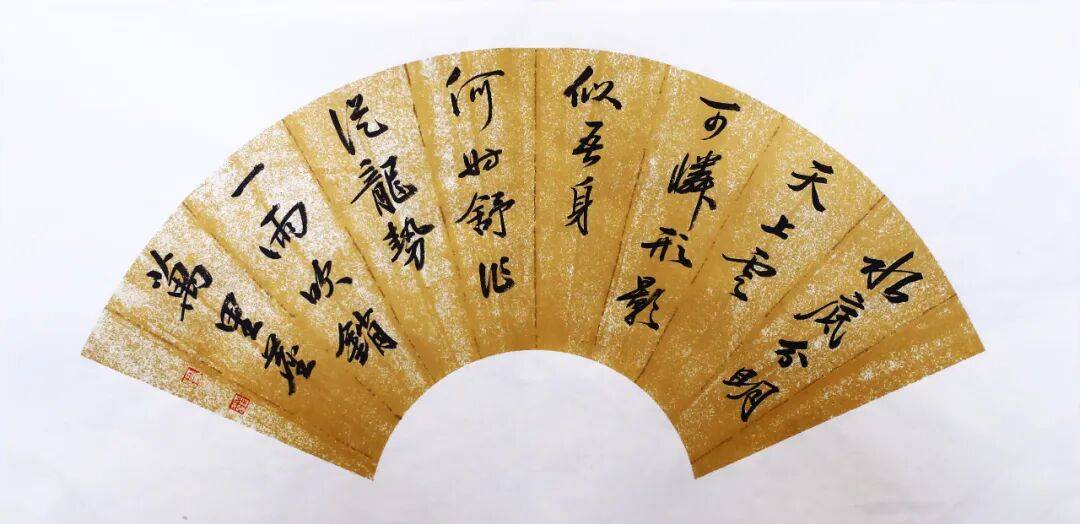 水底分明
天上雲
可憐形影
似吾身
何妨舒作
從龍勢
一雨吹銷
萬里塵